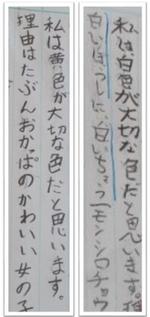 私は、白色が大切な色だと思います。
白いぼうしに、白いちょう モンシロチョウ
私は黄色が大切な色だと思います。
理由はたぶんおかっぱのかわいい女の子